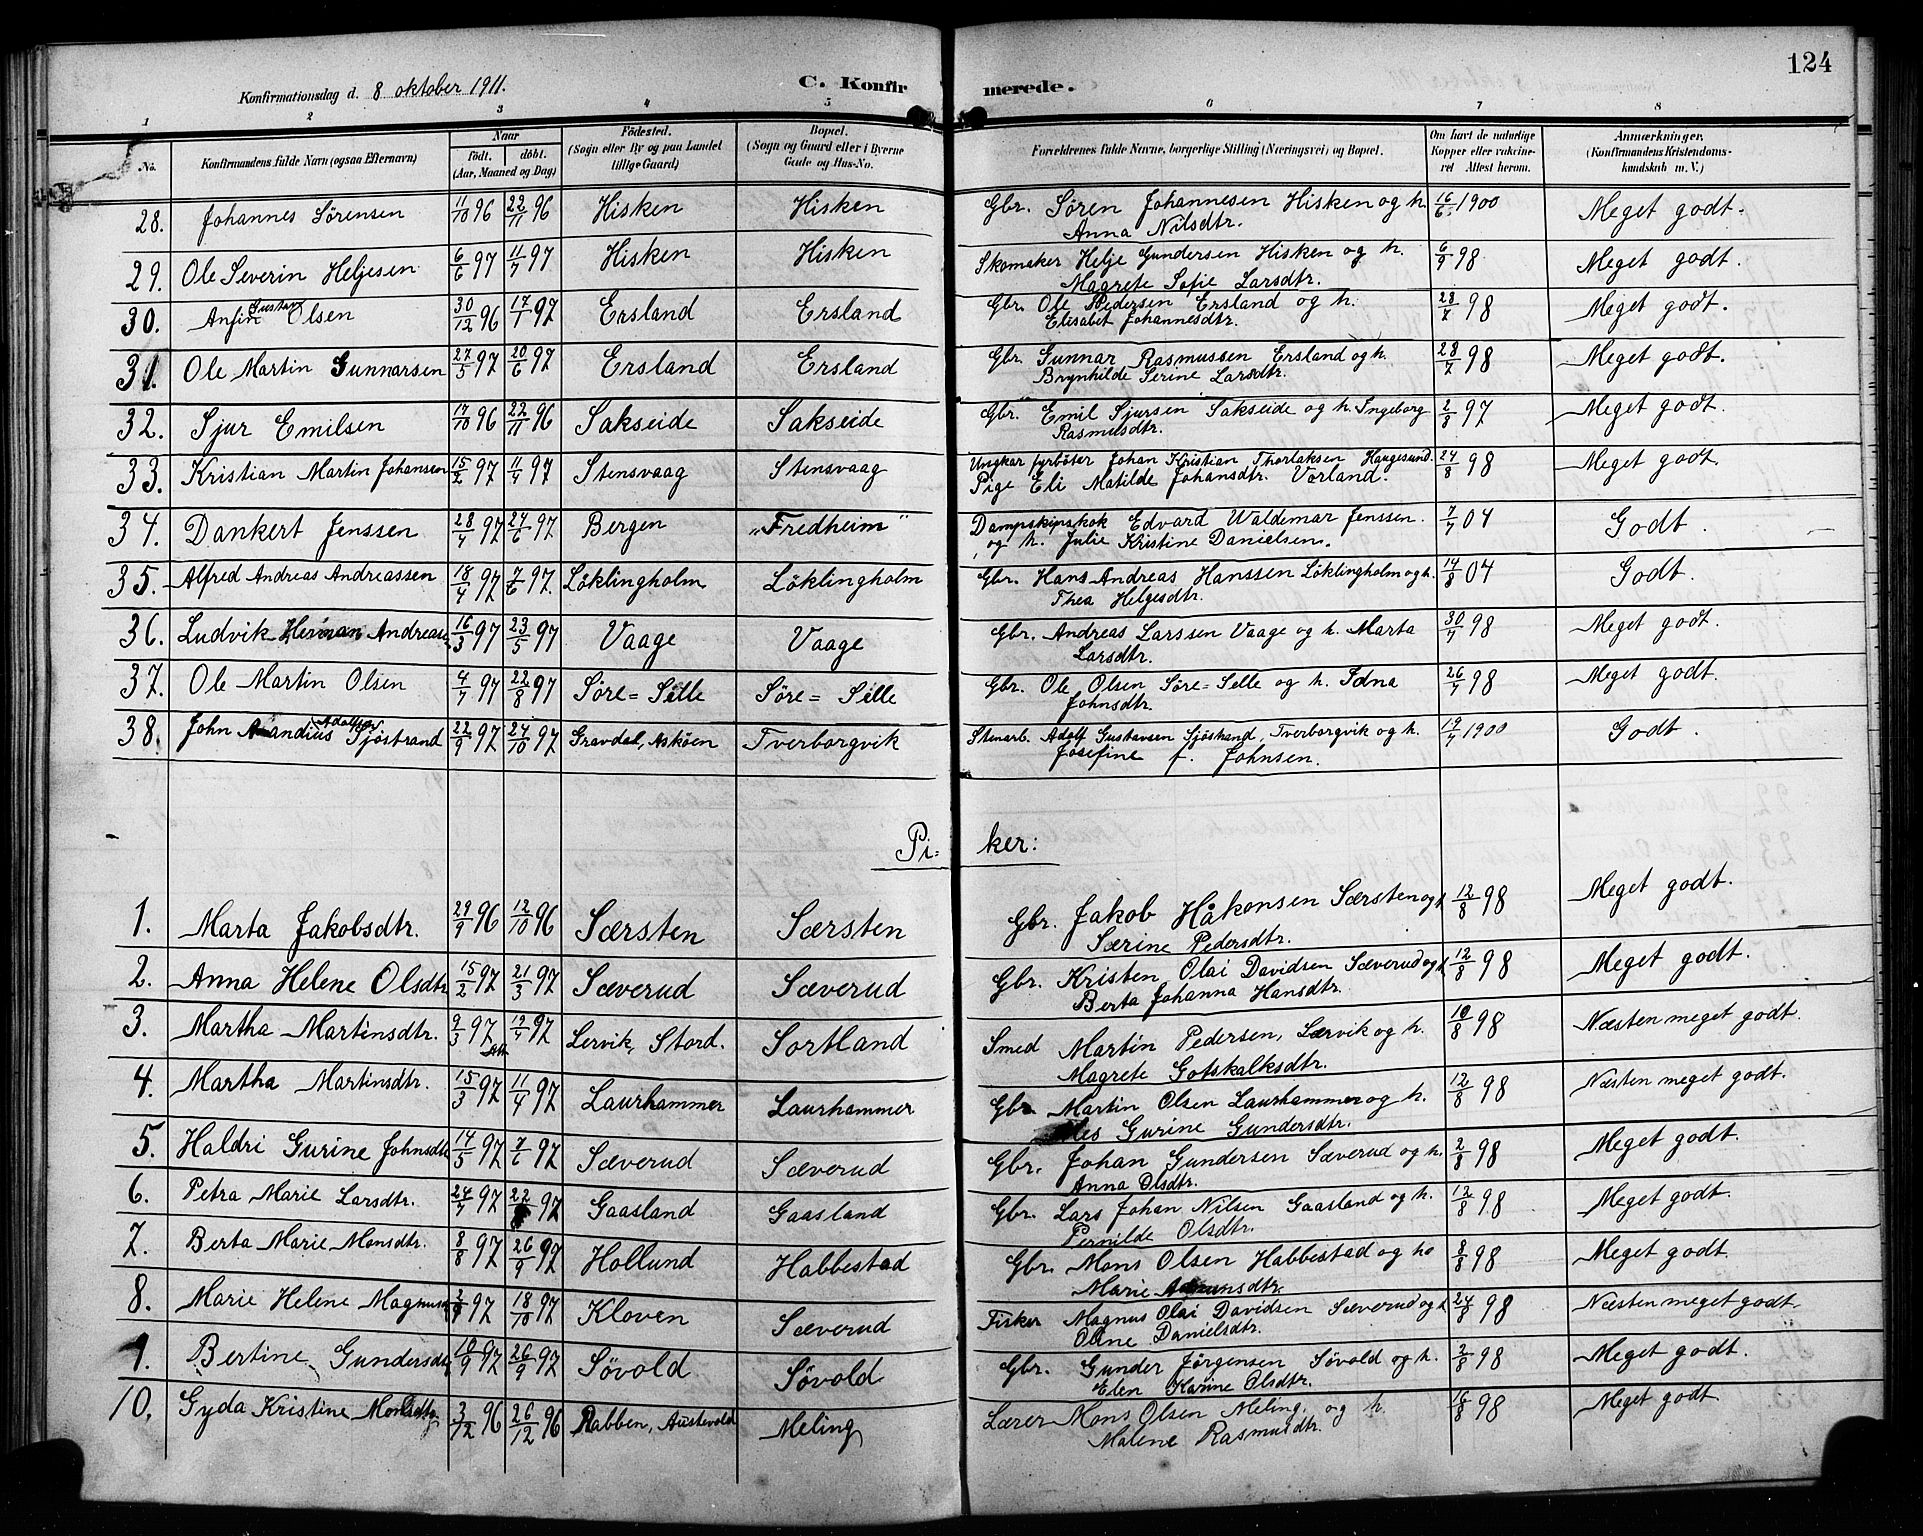 124
Konfirmationsdag d. 8 oktober 1911.
C. Konfirmerede.
1 2 3 4 5 6 7 8
No.
Konfirmandens fulde Navn (ogsaa Efternavn)
Naar
födt. döbt.
(Aar, Maaned og Dag)
Födested.
(Sogn eller By og paa Landet
tillige Gaard)
Bopæl.
(Sogn og Gaard eller i Byerne
Gade og Hus-No.
Forældrenes fulde Navne, borgerlige Stilling (Næringsvei) og Bopæl.
Om havt de naturlige
Kopper eller vakcine-
ret Attest herom.
Anmærkninger.
(Konfirmandens Kristendoms-
kundskab m. V.)
28. Johannes Sörensen 11/10 96 22/11 96 Hisken Hisken Gbr. Søren Johannesen Hisken og h. 16/6 1900 Meget godt.
Anna Nilsdtr.
29. Ole Severin Heljesen 6/6 97 11/7 97 Hisken Hisken Skomaker Helje Gundersen Hisken og h. 6/9 98 Meget godt.
Magrete Sofie Larsdtr.
30. Anfin Gustav Olsen 30/12 96 17/1 97 Ersland Ersland Gbr. Ole Pedersen Ersland og h. 28/7 98 Meget godt.
Elisabet Johannesdtr.
31. Ole Martin Gunnarsen 27/5 97 20/6 97 Ersland Ersland Gbr. Gunnar Rasmussen Ersland og h. 28/7 98 Meget godt.
Brynhilde Serine Larsdtr.
32. Sjur Emilsen 17/10 96 22/11 96 Sakseide Sakseide Gbr. Emil Sjursen Sakseide og h. Ingeborg 2/8 97 Meget godt.
Rasmusdtr.
33. Kristian Martin Johansen 15/2 97 11/4 97 Stensvaag Stensvaag Ungkar fyrböter Johan Kristian Thorlaksen Haugesund. 24/8 98 Meget godt.
Pige Eli Matilde Johansdtr. Vorland.
34. Dankert Jenssen 28/4 97 24/6 97 Bergen „Fredheim" Dampskipskok Edvard Waldemar Jenssen. 7/7 04 Godt.
og h. Julie Kristine Danielsen.
35. Alfred Andreas Andreassen 18/4 97 7/6 97. Löklingholm Löklingholm Gbr. Hans Andreas Hanssen Löklingholm og h. 14/8 04 Godt.
Thea Helgesdtr.
36. Ludvik Herman Andreas 16/3 97 23/5 97 Vaage Vaage Gbr. Andreas Larssen Vaage og h. Marta 30/7 98 Meget godt.
Larsdtr.
37. Ole Martin Olsen 4/7 97 22/8 97 Søre=Sille Søre=Sille Gbr. Ole Olsen Søre=Selle og h. Idna 26/7 98 Meget godt.
Johnsdtr.
38. John Sjöstrand 22/9 97 24/10 97 Gravdal, Asköen Tverborgvik Stenarb. Adolf Gustavsen Sjöstrand, Tverborgvik og h. 19/7 1900 Godt.
Josefine f. Johnsen.
Pi= ker:
1. Marta Jakobsdtr. 29/9 96 12/10 96 Særsten Særsten Gbr. Jakob Håkonsen Særsten og h. 12/8 98 Meget godt.
Særine Pedersdtr.
2. Anna Helene Olsdtr 15/2 97 21/3 97 Sæverud Sæverud Gbr. Kristen Olai Davidsen Sæverud og h. 12/8 98 Meget godt.
Berta Johanna Hansdtr.
3. Martha Martinsdtr. 9/3 97 19/4 97 Lervik, Stord. Sortland Smed Martin Pedersen, Lærvik og h. 10/8 98 Næsten meget godt.
Magrete Gotskalksdtr.
4. Martha Martinsdtr. 15/3 97 11/4 97 Laurhammer Laurhammer Gbr. Martin Olsen Laurhammer og h. 12/8 98 Næsten meget godt.
Gurine Gundersdtr.
5. Haldri Gurine Johnsdtr 14/5 97 7/6 97 Sæverud Sæverud Gbr. Johan Gundersen Sæverud og h. 2/8 98 Meget godt.
Anna Olsdtr.
6. Petra Marie Larsdtr. 24/4 97 22/ 97 Gaasland Gaasland Gbr. Lars Johan Nilsen Gaasland og h. 12/8 98 Meget godt.
Pernilde Olsdtr.
7. Berta Marie Monsdtr. 8/8 97 26/9 97 Hollund Habbestad Gbr. Mons Olsen Habbestad og h. 8/8 98 Meget godt.
Marie
8. Marie Helene 97 18/10 97 Kloven Sæverud Fisker Magnus Olai Davidsen Sæverud og h. 24/8 98 Næsten meget godt.
Oline Danielsdtr.
9. Bertine Gundersdtr 10/9 97 26/9 97 Søvold Søvold Gbr. Gunder Jørgensen Søvold og h. 2/8 98 Meget godt.
Elen Karine Olsdtr.
10. Gyda Kristine Monsdtr 3/12 96 26/12 96 Rabben, Austevold Meling Lærer Mons Olsen Meling, og h. 16/8 98 Meget godt.
Malene Rasmusdtr.